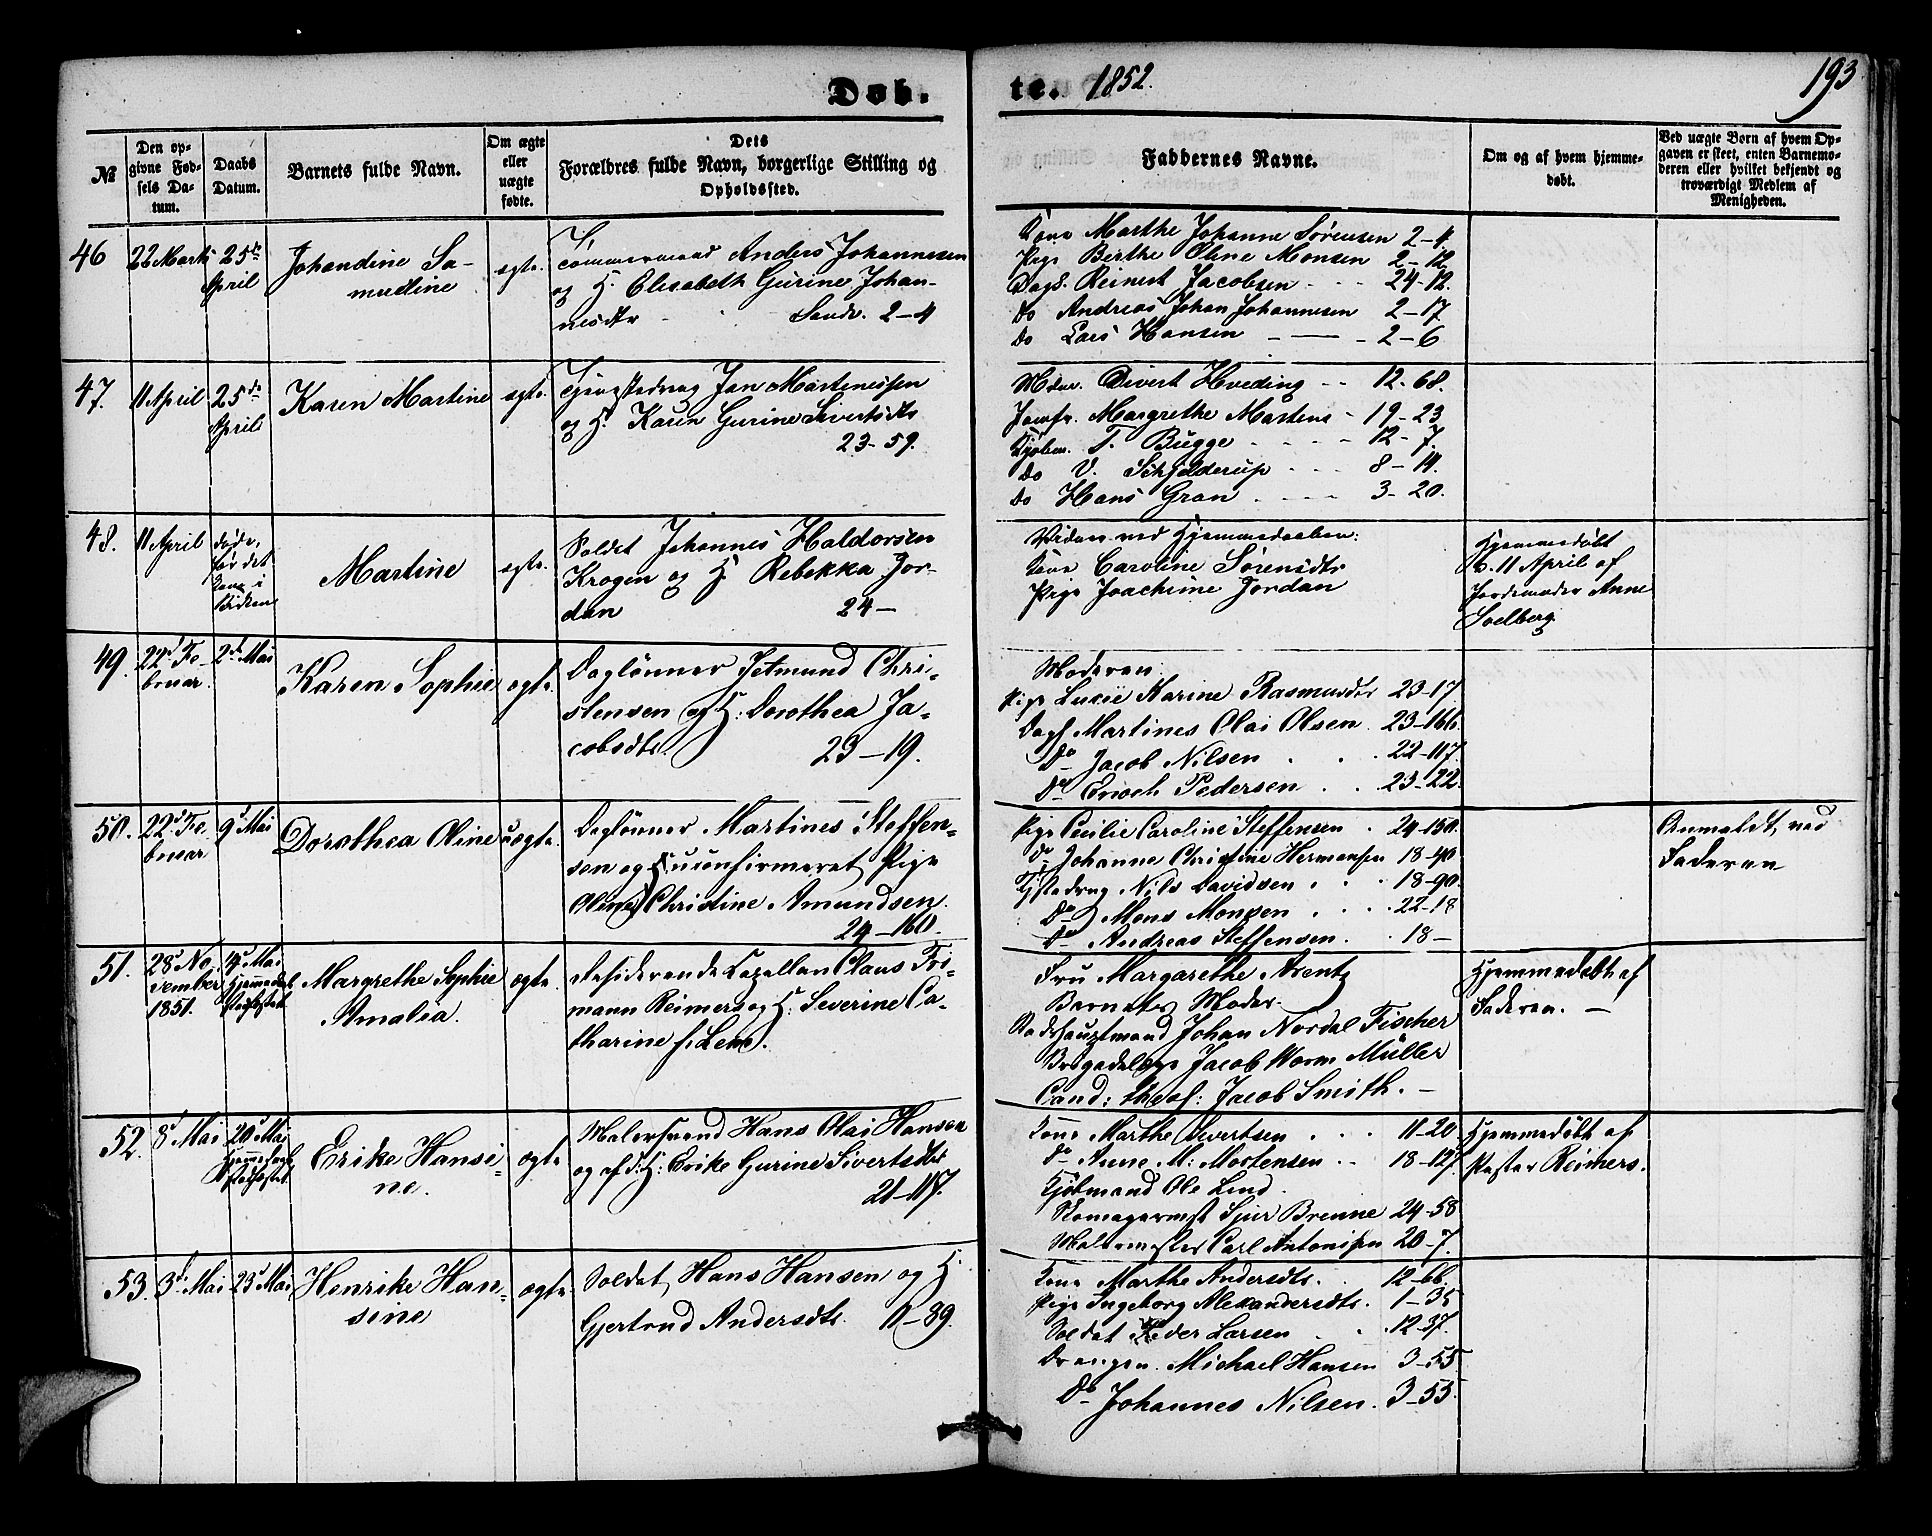 Døb-
te. 1852.
193
№
Den op-
givne Fød-
sels Da-
tum.
Daabs
Datum.
Barnets fulde Navn.
Om ægte
eller
uægte
fødte.
Dets
Forældres fulde Navn, borgerlige Stilling og
Opholdssted.
Faddernes Navne.
Om og af hvem hjemme-
døbt.
Ved uægte Born af hvem Op-
gaven er skeet, enten Barnemo-
deren eller hvilket bekjendt og
troværdigt Medlem af
Menigheden.
46
22 Marts
25de
April
Johandine Sa-
mueline
egte.
Tømmermand Anders Johannesen
og H. Elisabeth Gurine Johan-
nesdtr Sandv. 2–4
Kone Marthe Johanne Sørensen 2–4
Pige Birthe Oline Monsen 2–12
Dagl. Reinert Jacobsen 24–12.
Do Andreas Johan Johannesen 2–17
Do Lars Hansen 2–6
47.
11 April
25de
April
Karen Martine
egte.
Jan Martinessen
og H. Karen Gurine Sivertsdtr
23–59.
Sivert Hveding 12–68.
Jomfr. Margrethe Martens 19–23
Kjøbm. T. Bugge 12–7.
Do V. Schjelderup 8–14.
Do Hans Gran 3–20.
48.
11 April
døde,
før det
kom i
Kirken
Martine
egte.
Soldat Johannes Haldorsen
Krogen og H. Rebekka Jor-
dan 24–
Vidner ved Hjemmedaaben:
Kone Caroline Sørensdtr
Pige Joachime Jordan
Hjemmedøbt
d. 11 April af
Jordemoder Anne
Solberg
49.
22d Fe-
bruar.
2d Mai
Karen Sophie
egte.
Daglønner Jetmund Chri-
stensen og H: Dorothea Ja-
cobsdtr. 23–19.
Moderen.
Pige Lucie Karine Rasmusdtr 23–17
Dagl Martines Olai Olsen 23–166.
Do Jacob Nilsen 22–117.
Do Erich Pedersen 23–22.
50.
22d Fe-
bruar
9d Mai
Dorothea Oline
uegte.
Daglønner Martines Steffen-
sen og uconfirmeret Pige
Oline Christine Amundsen.
24–160.
Pige Cecilie Caroline Steffensen 24–150.
Do Johanne Christine Hermansen 18–90
Nils Davidsen 18–90.
Do Mons Monsen 22–18
Do Andreas Steffensen. 18–
Anmeldt ved
Faderen
51.
28d No-
vember
1851.
Mai
Hjemmedøbt
Stadfæstet
Margrethe Sophie
Amalia.
egte.
residerende Capellan Claus Fri-
mann Reimers og H: Severine Ca-
tharine f. Lem.
Fru Margarethe Arentz
Barnets Moder.
Stadshauptmand Johan Nordal Fischer
Brigadelæge Jacob Worm Müller
Cand: theol: Jacob Smith. –
Hjemmedøbt af
Faderen. –
52.
8d Mai
20d Mai
Hjemmedøbt
Stadfæstet
Erike Hansi-
ne.
egte
Malersvend Hans Olai Hansen
og H: Erike Gurine Sivertsdtr
21–117.
Kone Marthe Sivertsen 11–20
Do Anne M: Mortensen 18–127.
Kjøbmand Ole Lind.
Skomagermst Sjur Brenne 24–58
Malermester Carl Antonisen 20–7.
Hjemmedøbt af
Pastor Reimers.
53.
3d Mai
23d Mai
Henrike Han-
sine
egte.
Soldat Hans Hansen og H.
Gjertrud Andersdtr. 11–89.
Kone Marthe Andersdtr. 12–66.
Pige Ingeborg Alexandersdtr. 1–35
Soldat Peder Larsen 12–37.
Drengen. Michael Hansen 3–55
Do Johannes Nilsen. 3–55